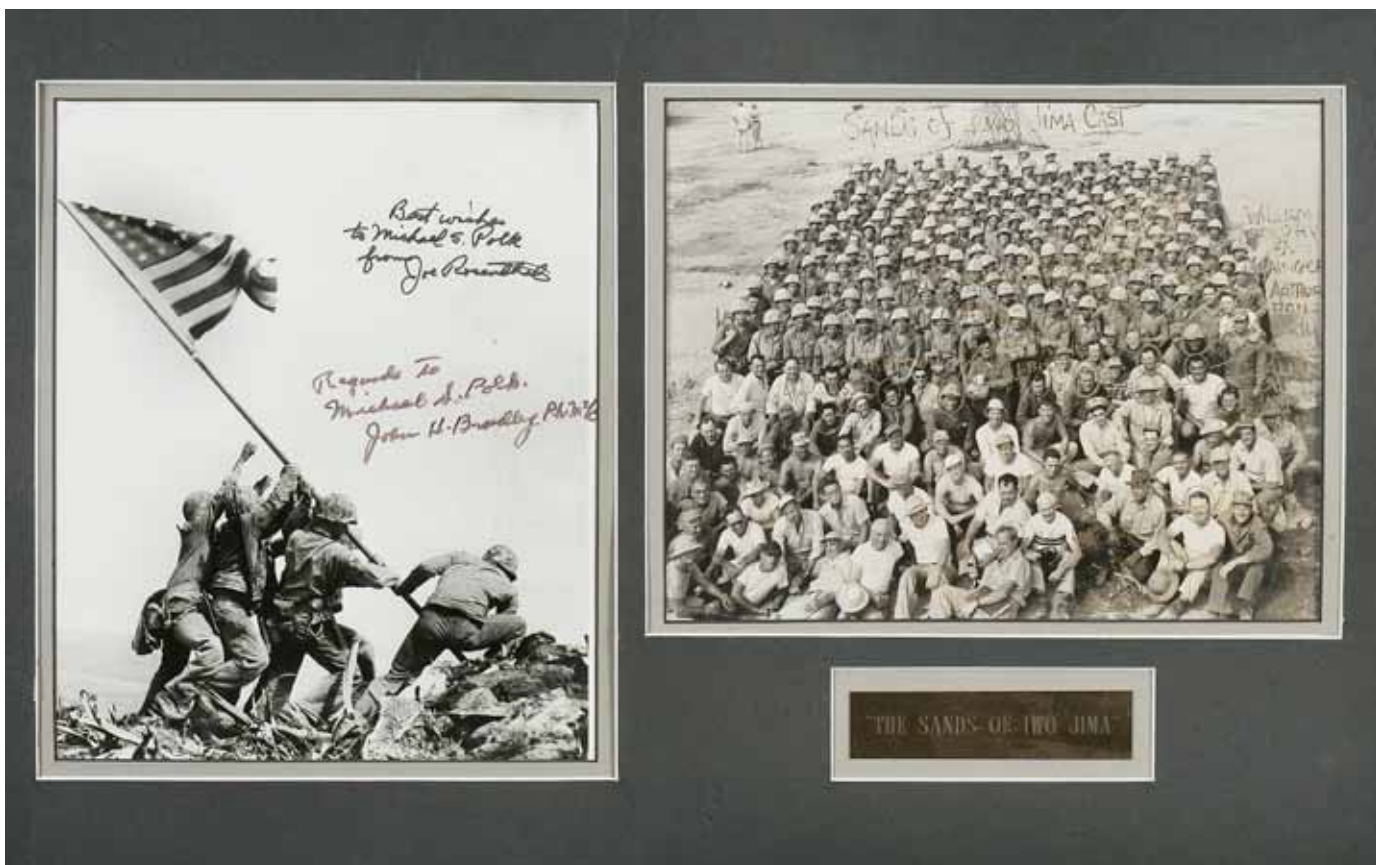 Best wishes
to Michael S. Polk
from
Joe Rosenthal
Regards To
Michael S. Polk.
John H. Bradley
SANDS of IWO JIMA CAST
WILLIAM
ARTHUR
"THE SANDS OF IWO JIMA"